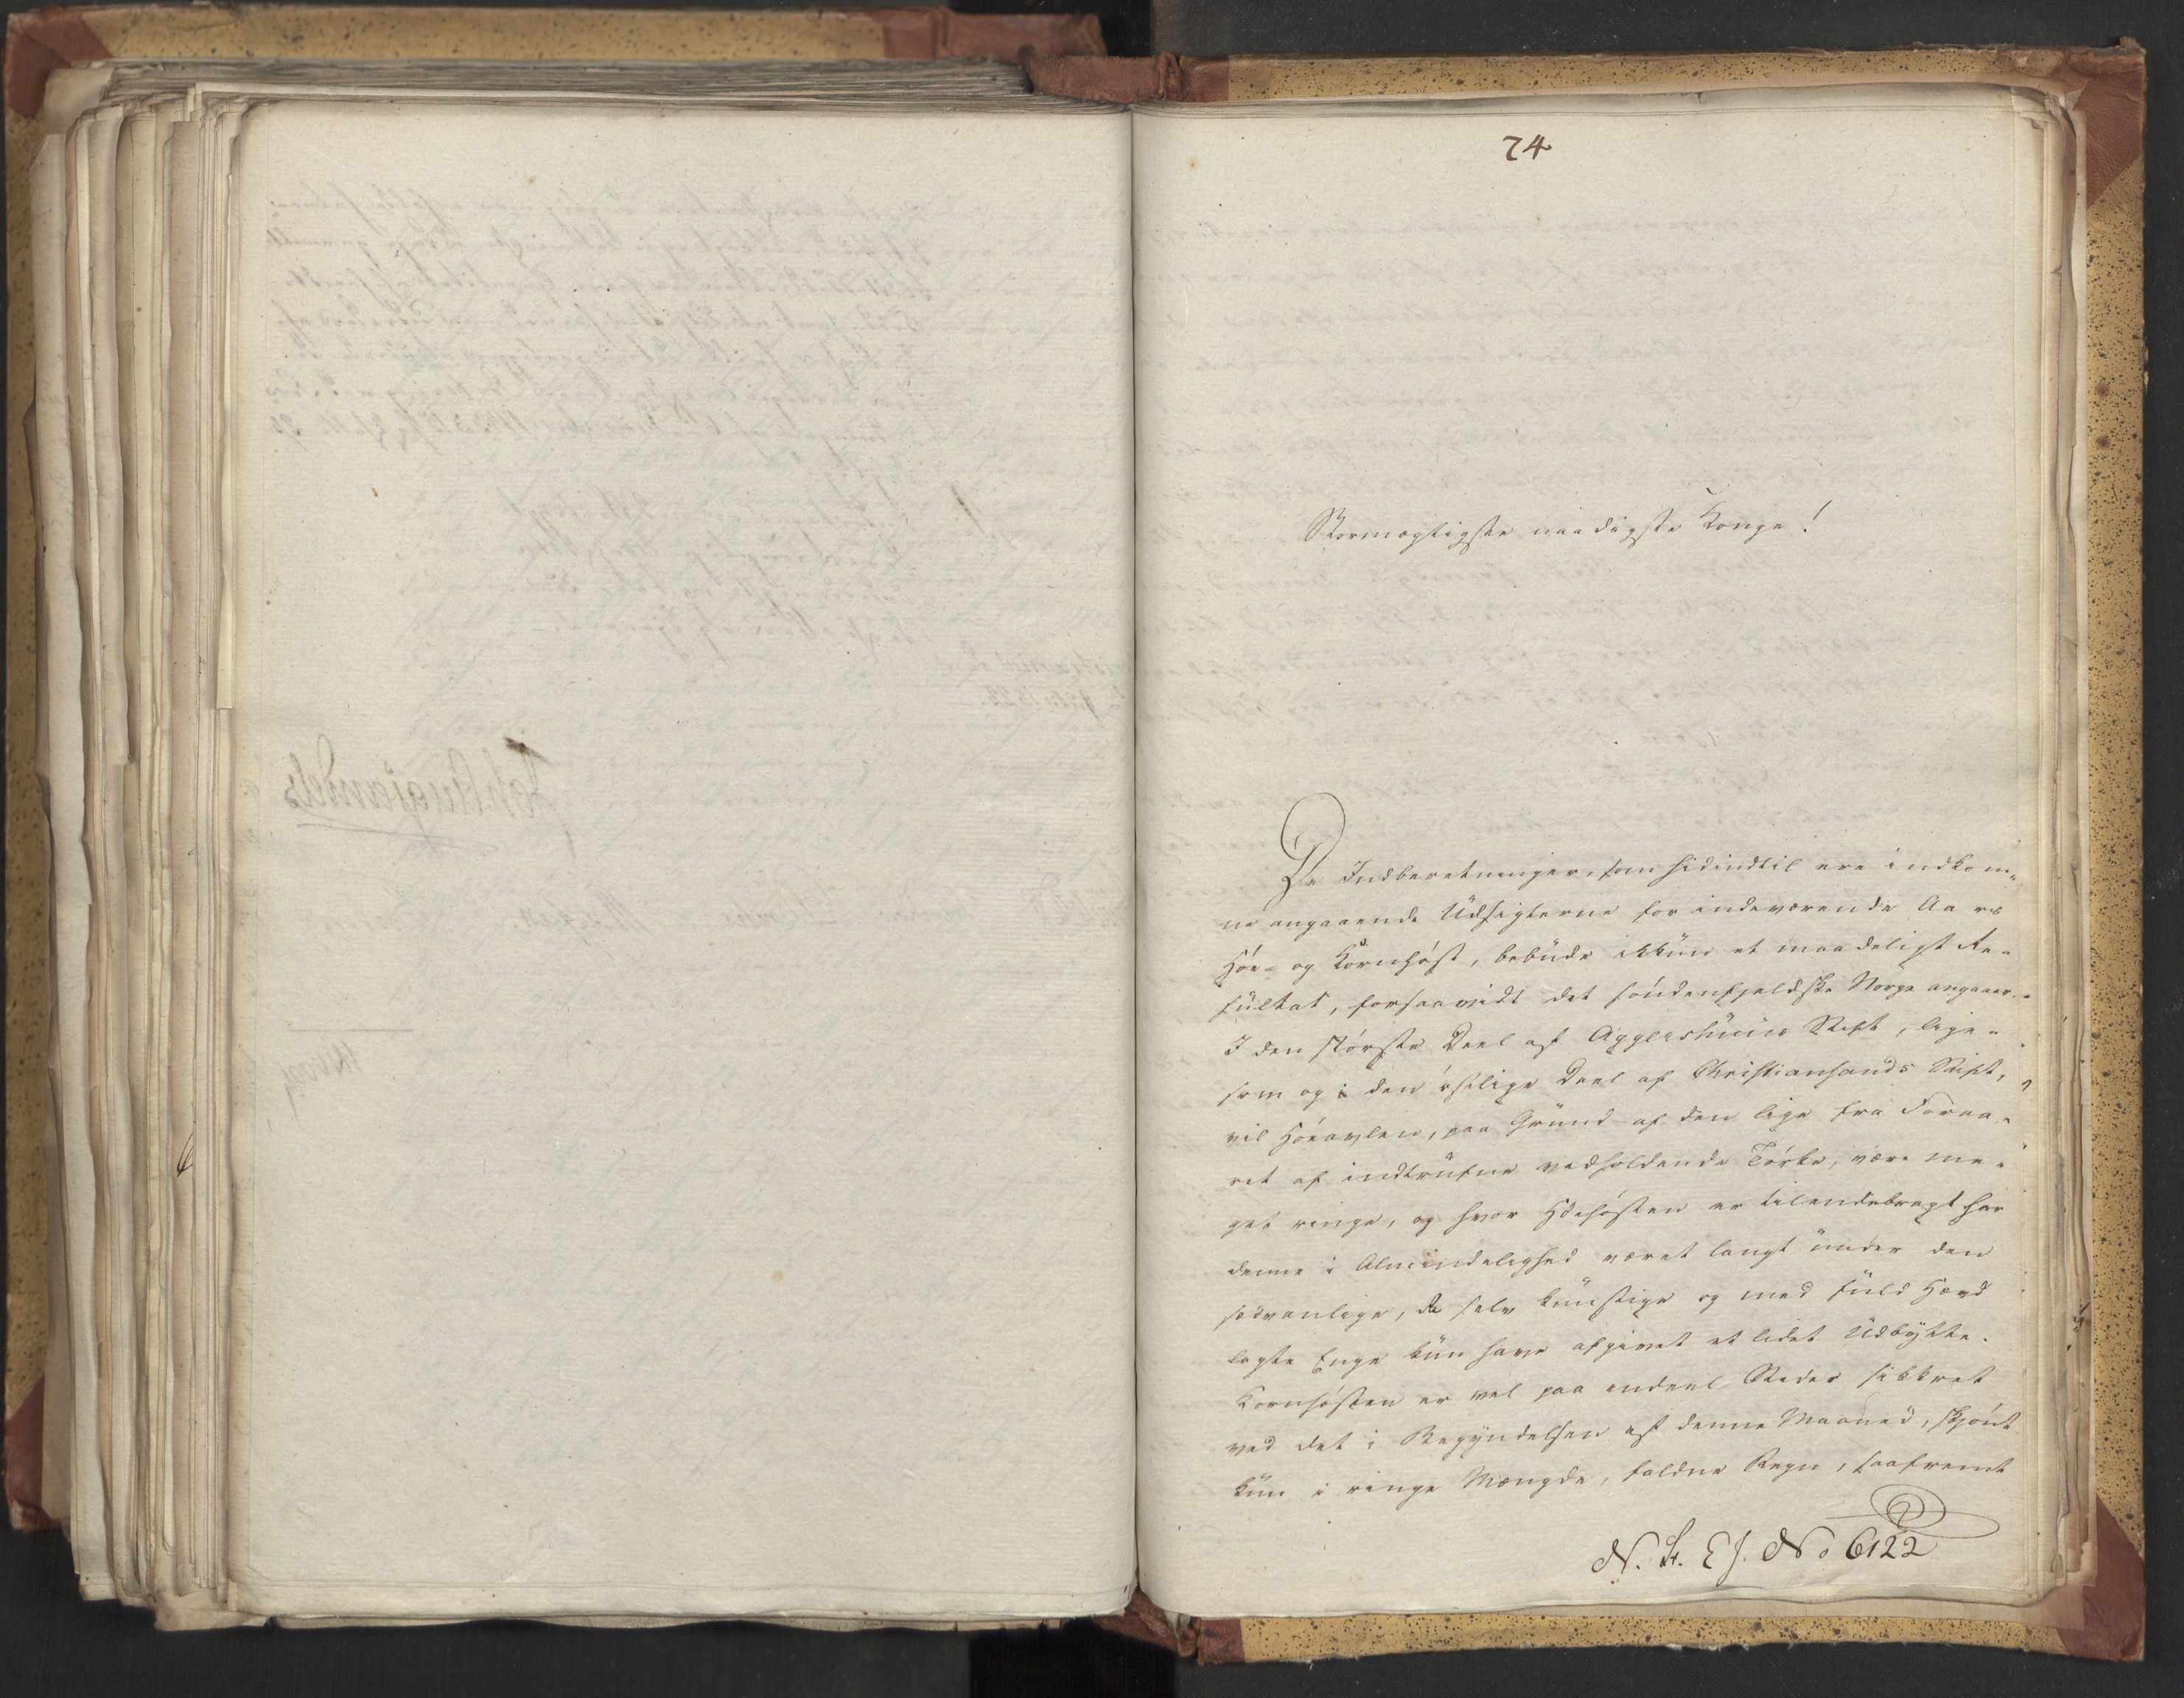 74
Stormægtigste naadigste Konge!
De Indberetninger, som hidindtil ere indkom„
ne angaaende Udsigterne for indeværende Aars
Höe- og Kornhöst, bebude ikkun et maadeligt Re„
sultat, forsaavidt det söndenfjeldske Norge angaaer.
I den störste Deel af Aggershuus Stift, lige„
som og i den östlige Deel af Christiansands Stift,
vil Höeavlen, paa Grund af den lige fra Foraa„
ret af indtrufne vedholdende Törke, være me„
get ringe, og hvor Höehösten er tilendebragt har
denne i Almindelighed været langt under den
sædvanlige, da selv kunstige og med fuld Hævd
lagte Enge kun have afgivet et lidet Udbytte.
Kornhösten er vel paa endeel Steder sikkret
ved det i Begyndelsen af denne Maaned, skjönt
kun i ringe Mængde, faldne Regn, saafremt
N. St. Ex. No 6122